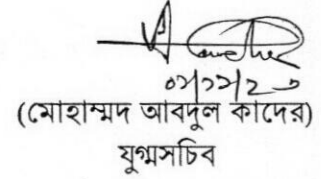 (মোহাম্মদ আবদুল কাদের)
যুগ্মসচিব